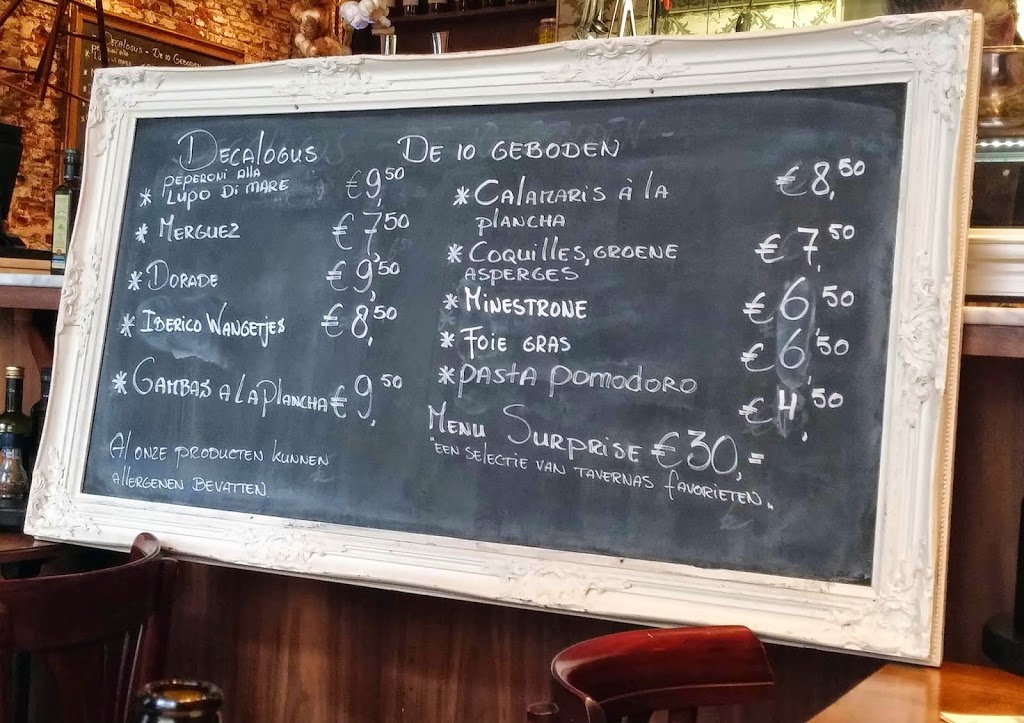 DECALOGUS - DE 10 GEBODEN
DECALOGUS DE 10 GEBODEN
* PEPERONI ALLA
LUPO DI MARE €9,50
* MERGUEZ €7,50
* DORADE €9,50
* IBERICO WANGETJES €8,50
* GAMBAS A LA PLANCHA €9,50
AL ONZE PRODUCTEN KUNNEN
ALLERGENEN BEVATTEN.
* CALAMARIS à la €8,50
PLANCHA
* COQUILLES, GROENE €7,50
ASPERGES
* MINESTRONE €6,50
* FOIE GRAS €6,50
* PASTA POMODORO €4,50
MENU SURPRISE €30,=
"EEN SELECTIE VAN TAVERNAS FAVORIETEN„